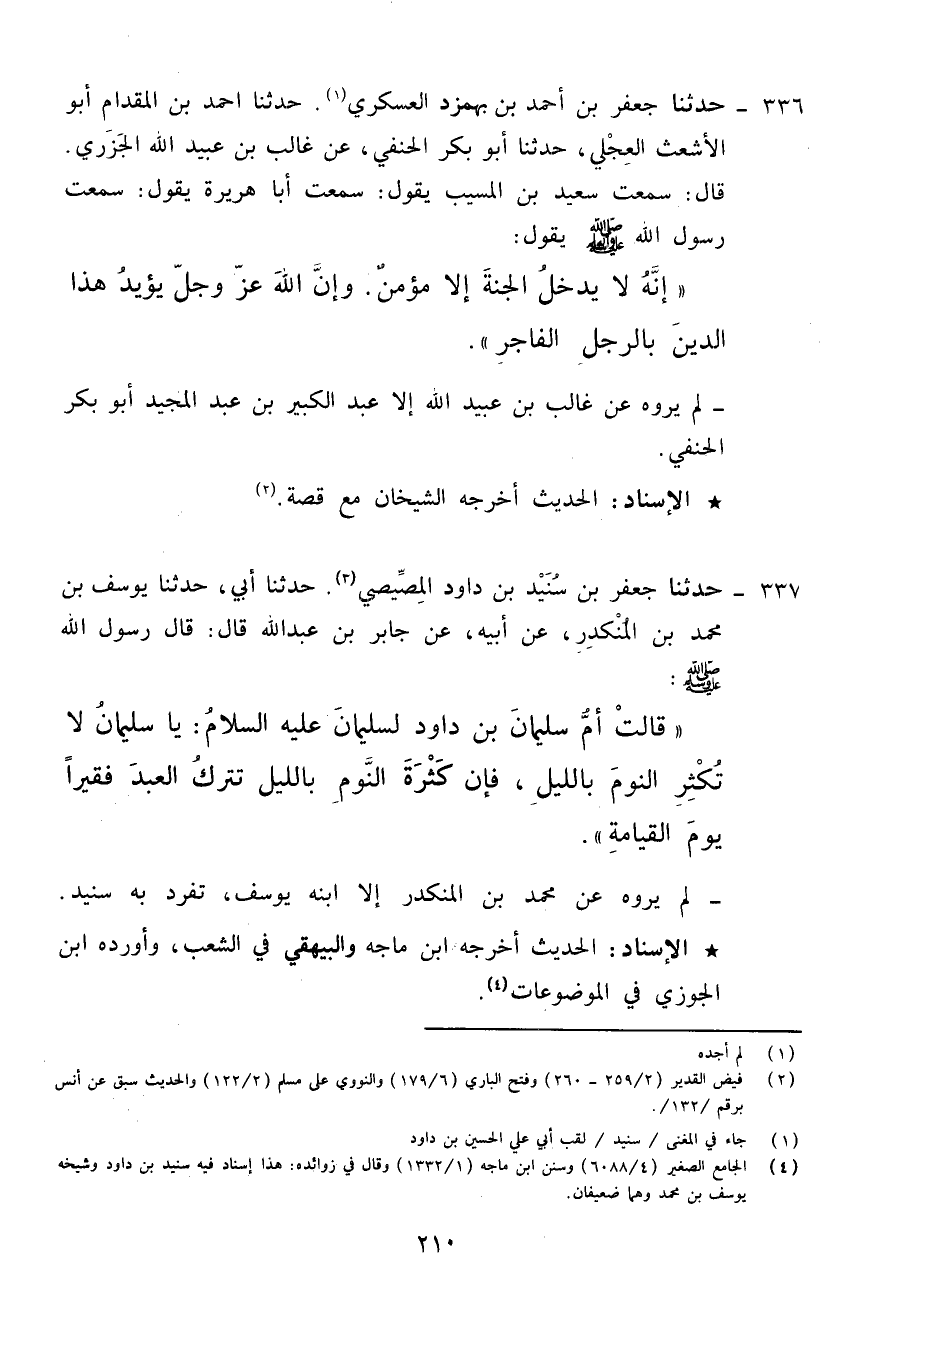 ٣٣٦ ـ حدثنا جعفر بن أحمد بن بهمزد العسكري(١). حدثنا احمد بن المقدام أبو
الأشعث العِجْلي، حدثنا أبو بكر الحنفي، عن غالب بن عبيد الله الجَزَري.
قال: سمعت سعيد بن المسيب يقول: سمعت أبا هريرة يقول: سمعت
رسول الله ﷺ يقول:
« إنَّهُ لا يدخلُ الجنةَ إلا مؤمنٌ. وإنَّ اللهَ عزّ وجلّ يؤيدُ هذا
الدينَ بالرجلِ الفاجرِ ».
ـ لم يروه عن غالب بن عبيد الله إلا عبد الكبير بن عبد المجيد أبو بكر
الحنفي.
★ الإسناد: الحديث أخرجه الشيخان مع قصة.(٢)
٣٣٧ ـ حدثنا جعفر بن سُنَيْد بن داود المِصِّيصي(٣). حدثنا أبي، حدثنا يوسف بن
محمد بن المُنْكدِر، عن أبيه، عن جابر بن عبدالله قال: قال رسول الله
ﷺ :
« قالتْ أمُّ سليمانَ بن داود لسليمانَ عليه السلامُ: يا سليمانُ لا
تُكْثِرِ النومَ بالليلِ، فإن كَثْرَةَ النَّومِ بالليل تتركُ العبدَ فقيراً
يومَ القيامةِ ».
ـ لم يروه عن محمد بن المنكدر إلا ابنه يوسف، تفرد به سنيد.
★ الإسناد: الحديث أخرجه ابن ماجه والبيهقي في الشعب، وأورده ابن
الجوزي في الموضوعات(٤).
(١) لم أجده
(٢) فيض القدير (٢٥٩/٢ ـ ٢٦٠) وفتح الباري (١٧٩/٦) والنووي على مسلم (١٢٢/٢) والحديث سبق عن أنس
برقم /١٣٢/.
(١) جاء في المغنى / سنيد / لقب أبي علي الحسين بن داود
(٤) الجامع الصغير (٦٠٨٨/٤) وسنن ابن ماجه (١٣٣٢/١) وقال في زوائده: هذا إسناد فيه سنيد بن داود وشيخه
يوسف بن محمد وهما ضعيفان.
٢١٠